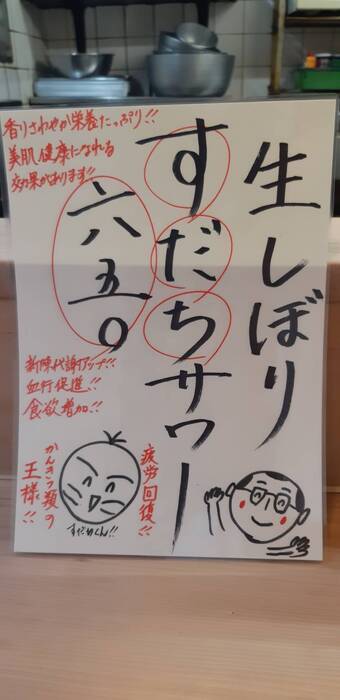 生しぼり
すだちサワー
六八五〇
香りさわやか栄養たっぷり!!
美肌健康になれる
効果があります!!
新陳代謝アップ!!
血行促進!!
食欲増加!!
疲労回復!!
かんきつ類の
王様!!
すだちくん!!